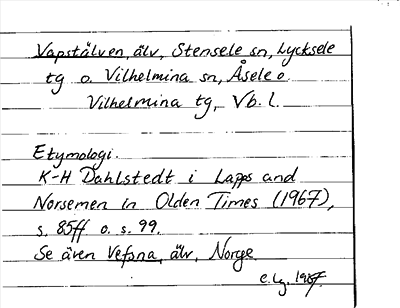 Vapstälven, älv, Stensele sn, Lycksele
tg o. Vilhelmina sn, Åsele o
Vilhelmina tg, Vb. l.
Etymologi.
K-H Dahlstedt i Lapps and
Norsemen in Olden Times (1967),
s. 85ff o. s. 99.
Se även Vefsna, älv, Norge
1987.